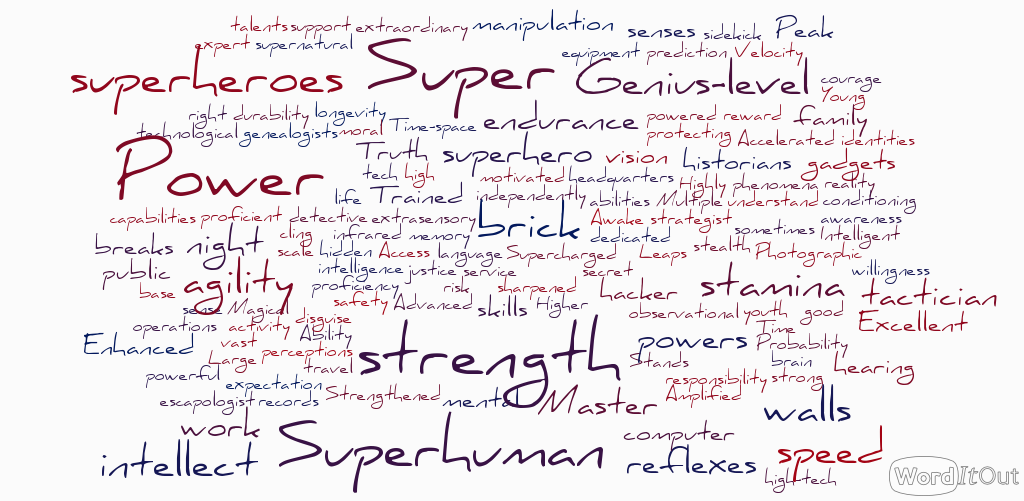 talents support extraordinary manipulation senses sidekick Peak
expert supernatural equipment prediction Velocity
superheroes Super Genius-level courage
Young
right durability longevity powered reward family
technological genealogists moral Time-space endurance protecting Accelerated identities
Power Truth superhero vision historians gadgets
tech high motivated headquarters Highly phenomena reality
life Trained independently abilities Multiple understand conditioning
capabilities proficient detective extrasensory brick Awake strategist awareness
breaks night cling infrared memory dedicated sometimes Intelligent
scale hidden Access language Supercharged Leaps stealth Photographic
public intelligence justice service secret willingness
base agility proficiency risk sharpened hacker stamina tactician
sense Magical safety Advanced skills Higher observational youth good Excellent
operations activity disguise Time
Enhanced vast Ability strength powers Probability
Large perceptions Stands brain hearing
powerful travel responsibility strong
expectation Strengthened mental Amplified
escapologist records Master walls
work Superhuman computer
intellect reflexes speed
high-tech
WordItOut